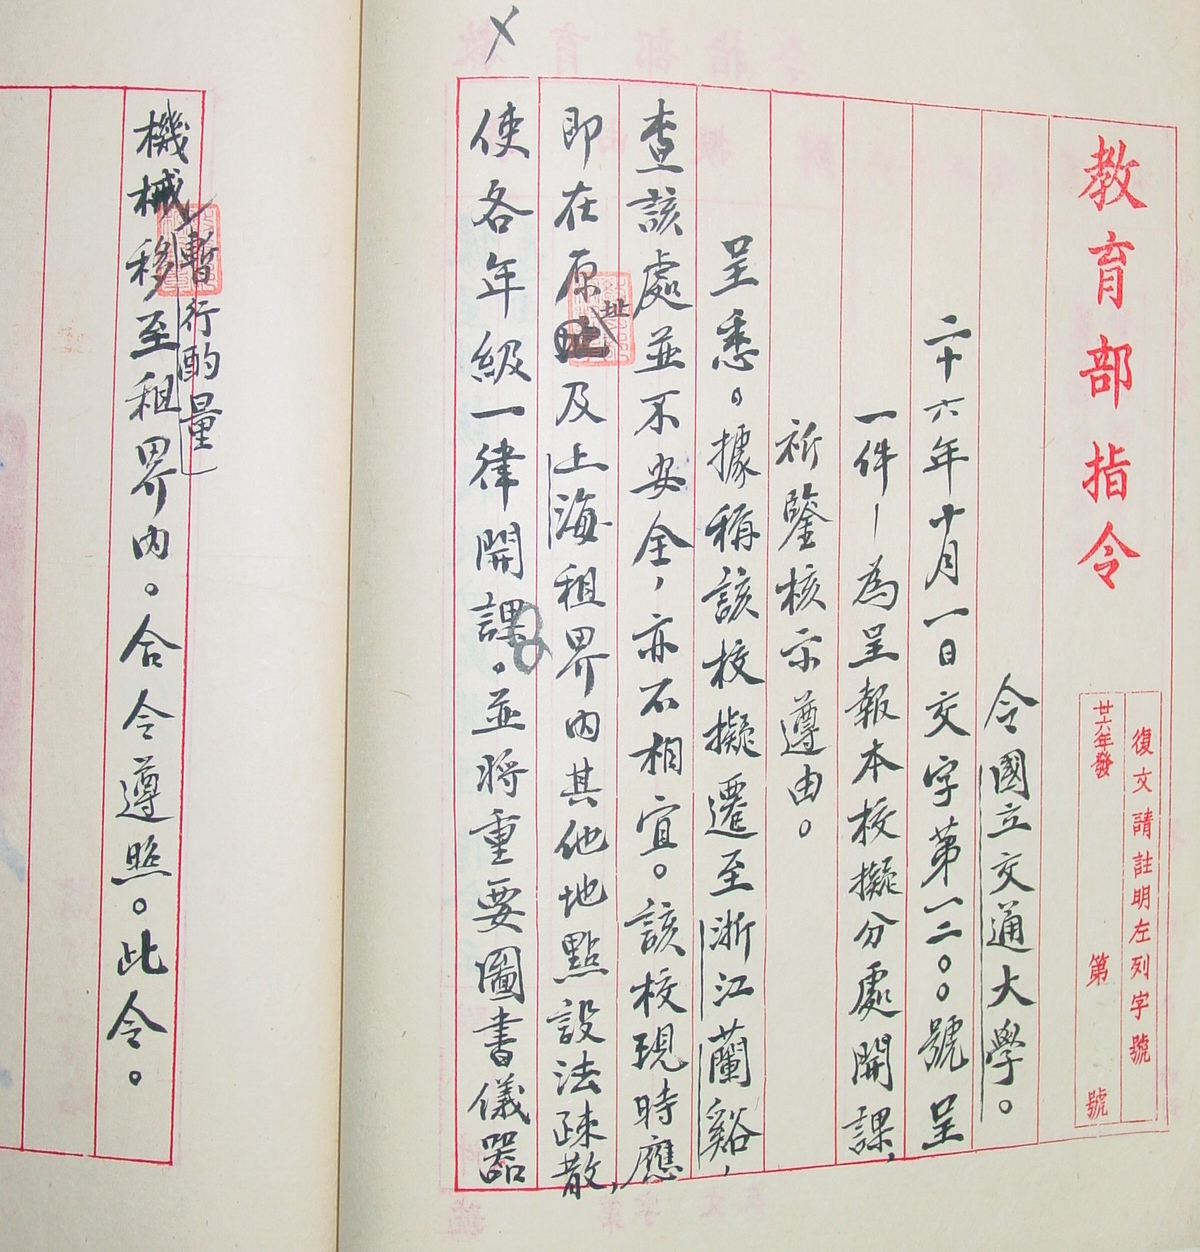 教育部指令
復文請註明左列字號
廿六年發 第 號
令國立交通大學。
二十六年十月一日交字第一二〇〇號呈
一件—為呈報本校擬分處開課,
祈鑒核示遵由。
呈悉。據稱該校擬遷至浙江蘭谿,
查該處並不安全,亦不相宜。該校現時應
即在原址及上海租界內其他地點設法疎散,
使各年級一律開課。並將重要圖書儀器
機械,暫行酌量移至租界內。合令遵照。此令。